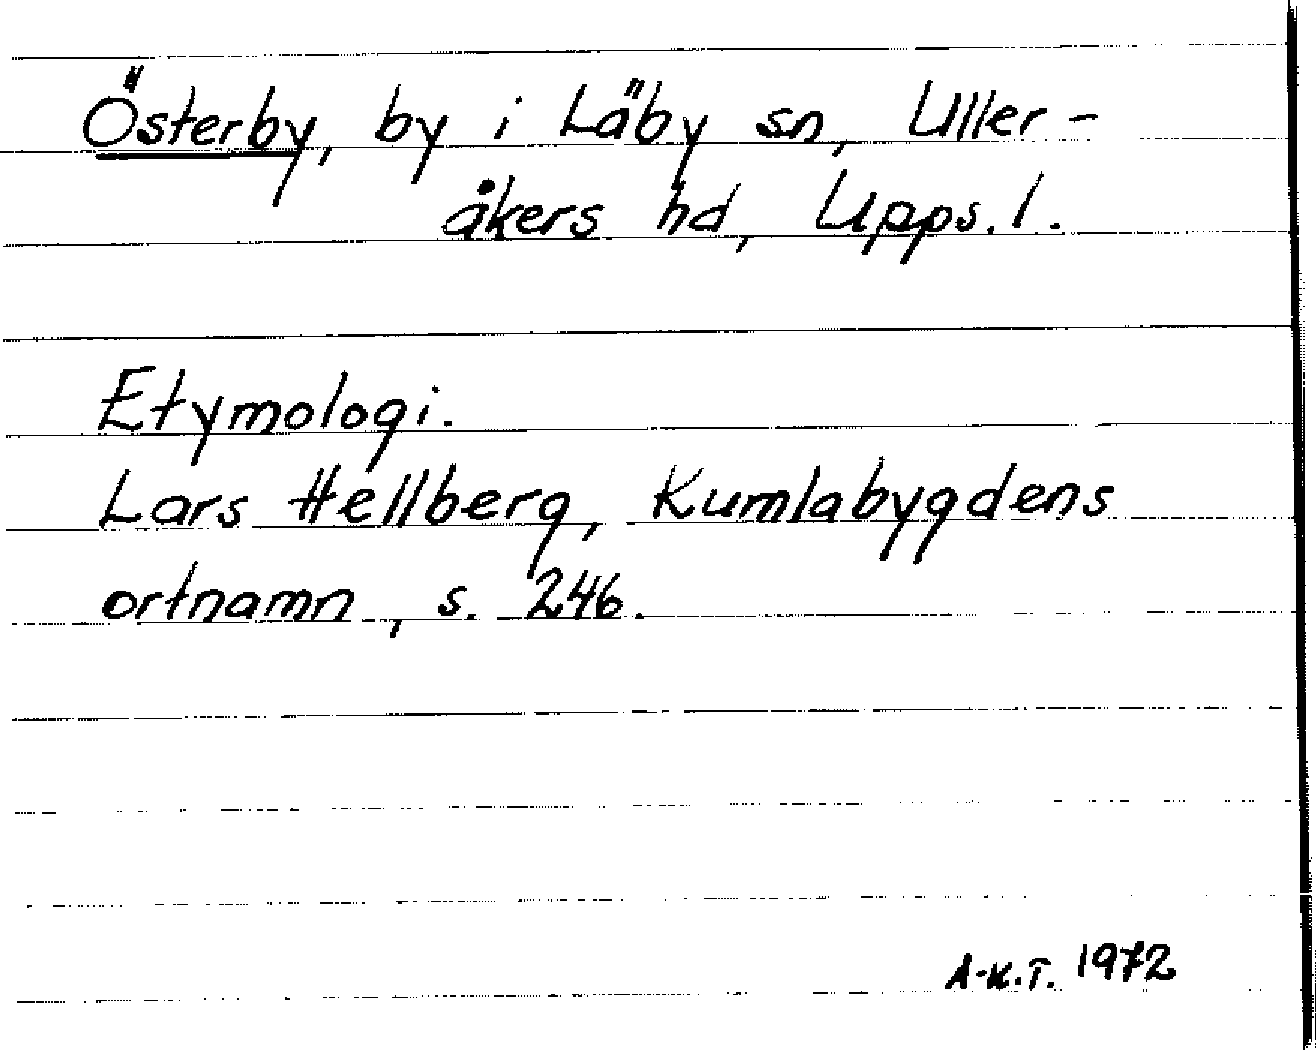 Österby, by i Läby sn, Uller-
åkers hd, Upps. l.
Etymologi.
Lars Hellberg, Kumlabygdens
ortnamn, s. 246.
A-K.T. 1972